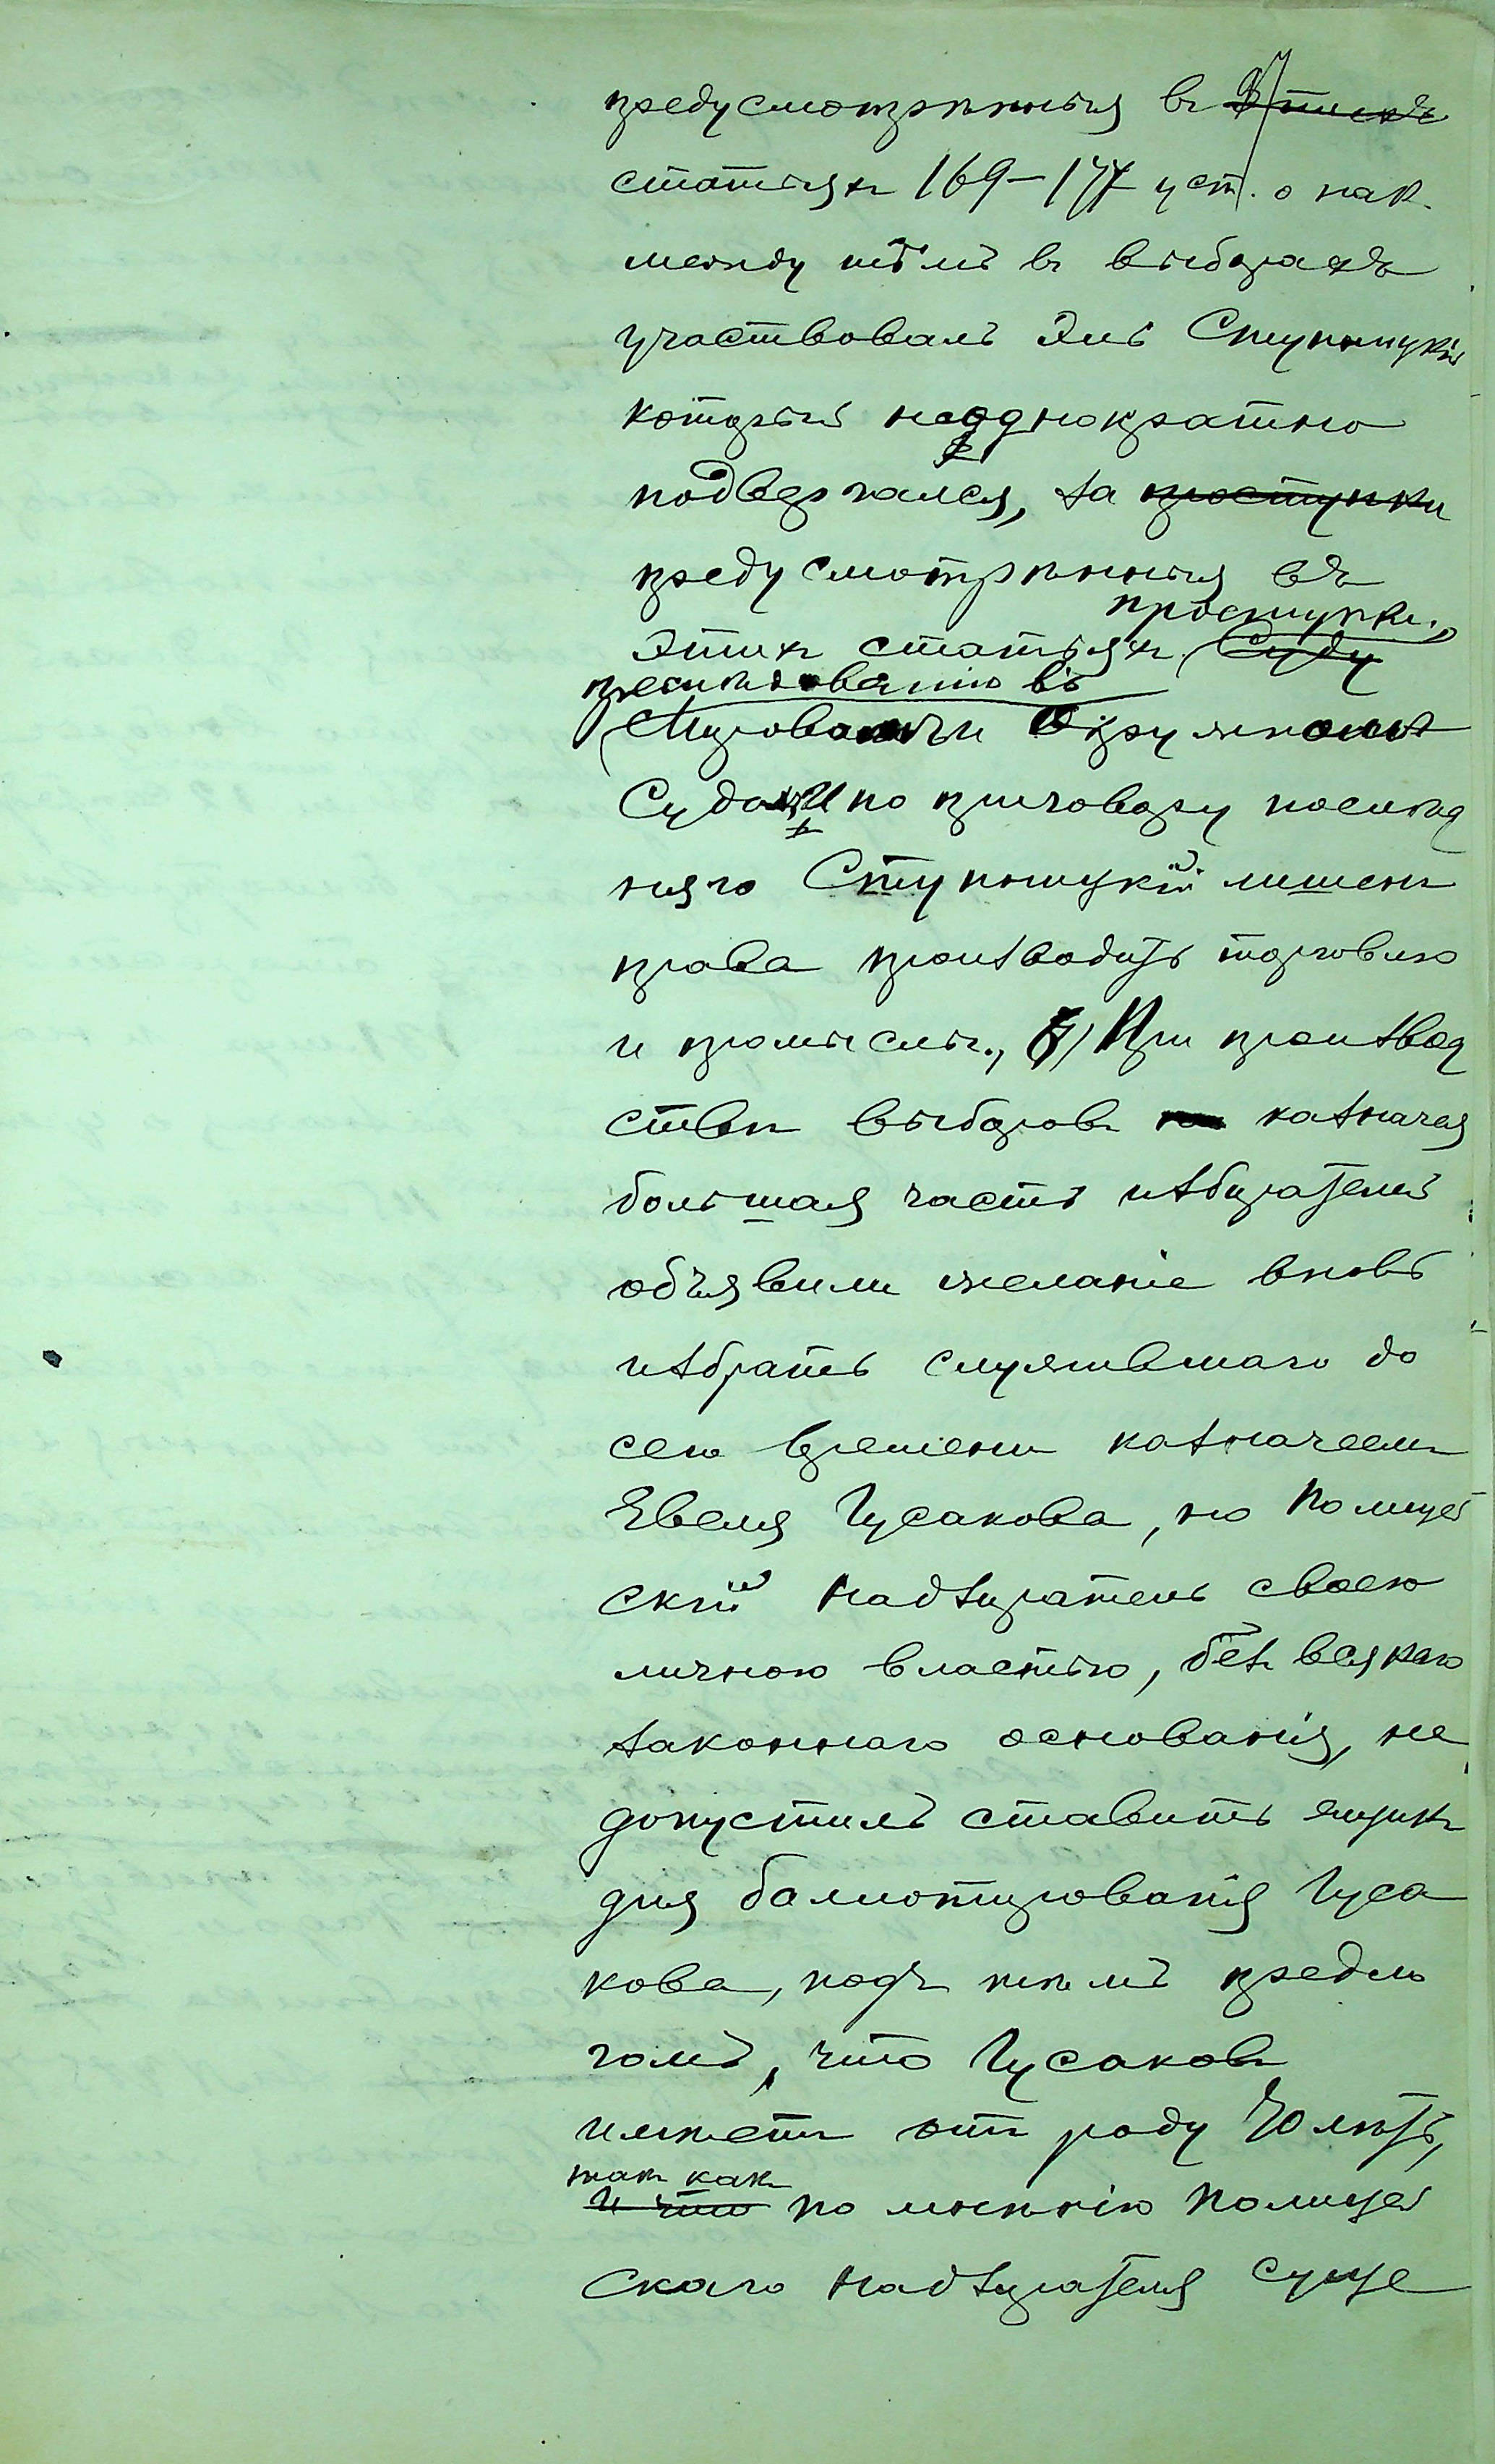 предусмотрѣнныя въ этихъ
статьяхъ 169–177 уст. о нак.
между тѣмъ въ выборахъ
участвовалъ Эля Ступницкій
который неоднократно
подвергался, за проступки
предусмотрѣнныя въ
проступки,
этихъ статьяхъ Суду
преслѣдованію въ
Мировомъ и Окружномъ
Судахъ И по приговору послѣд
няго Ступницкій лишенъ
права производить торговлю
и промыслы., 7) При производ
ствѣ выборовъ казначея
большая часть избирателей
объявили желаніе вновь
избрать служившаго до
сего времени казначеемъ
Евеля Гусакова, но Полицей
скій Надзиратель своею
личною властью, безъ всякаго
законнаго основанія, не
допустилъ ставить ящикъ
для баллотированія Гуса
кова, подъ тѣмъ предло
гомъ, что Гусаковъ
имѣетъ отъ роду 70 лѣтъ,
такъ какъ
и что по мнѣнію Полицей
скаго Надзирателя суще